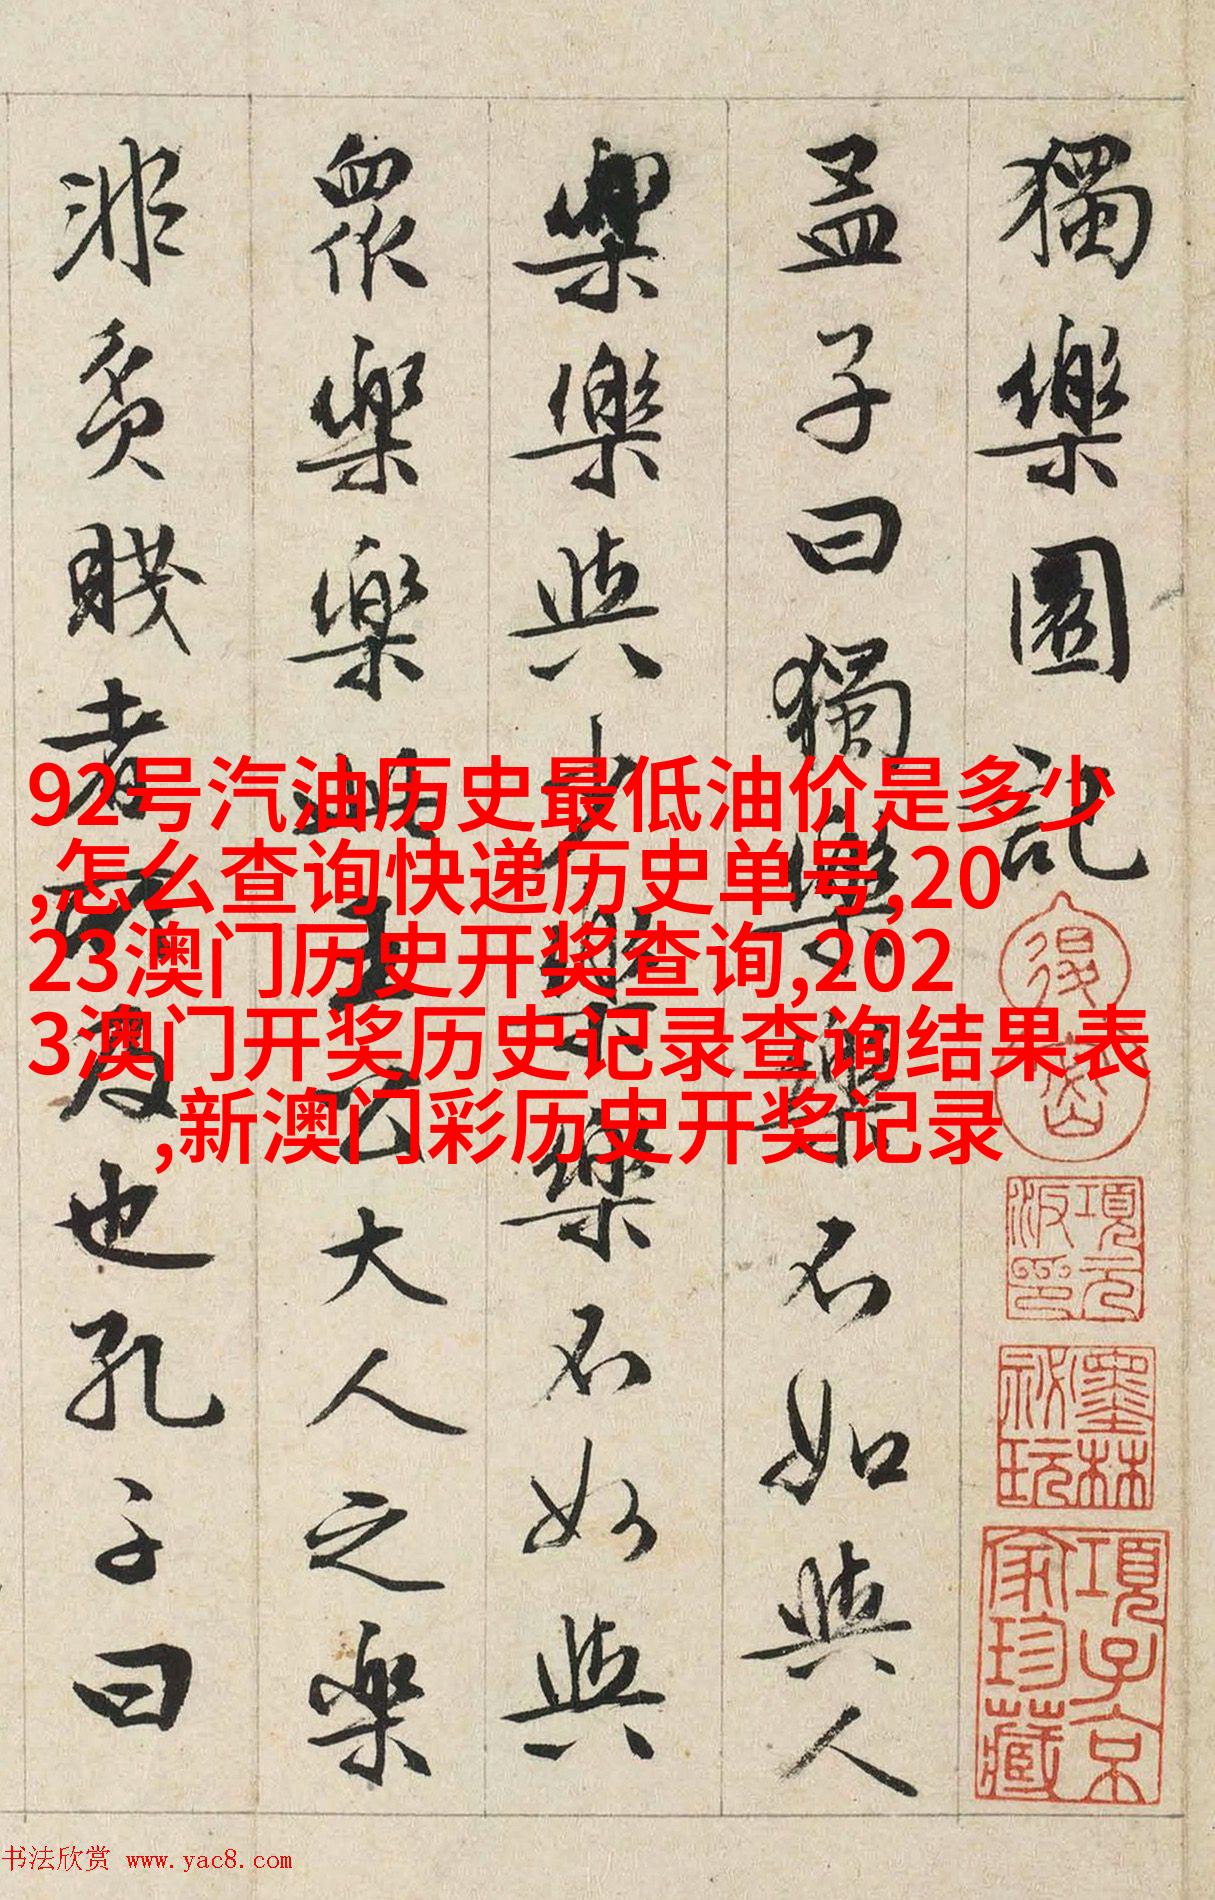 獨樂園記
孟子曰獨樂樂不如與人
樂樂與少樂樂不如與
衆樂樂此王公大人之樂
非貧賤者所及也孔子曰
92号汽油历史最低油价是多少
,怎么查询快递历史单号,20
23澳门历史开奖查询,202
3澳门开奖历史记录查询结果表
,新澳门彩历史开奖记录
項元汴印
墨林秘玩
項子京家珍藏
书法欣赏 www.yac8.com